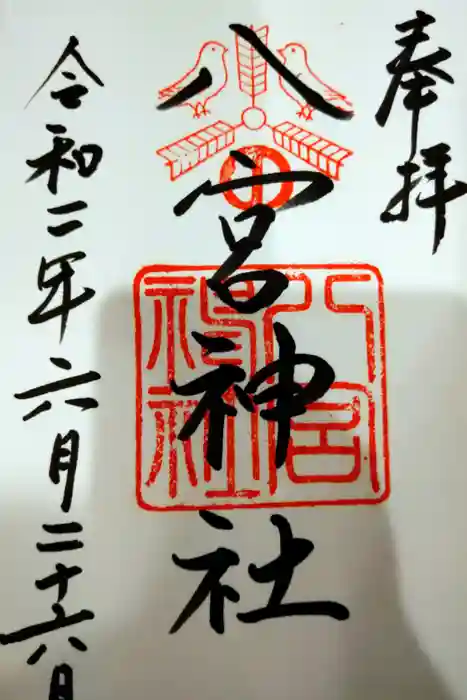 奉拝
八宮神社
八宮
神社
令和二年六月二十六日